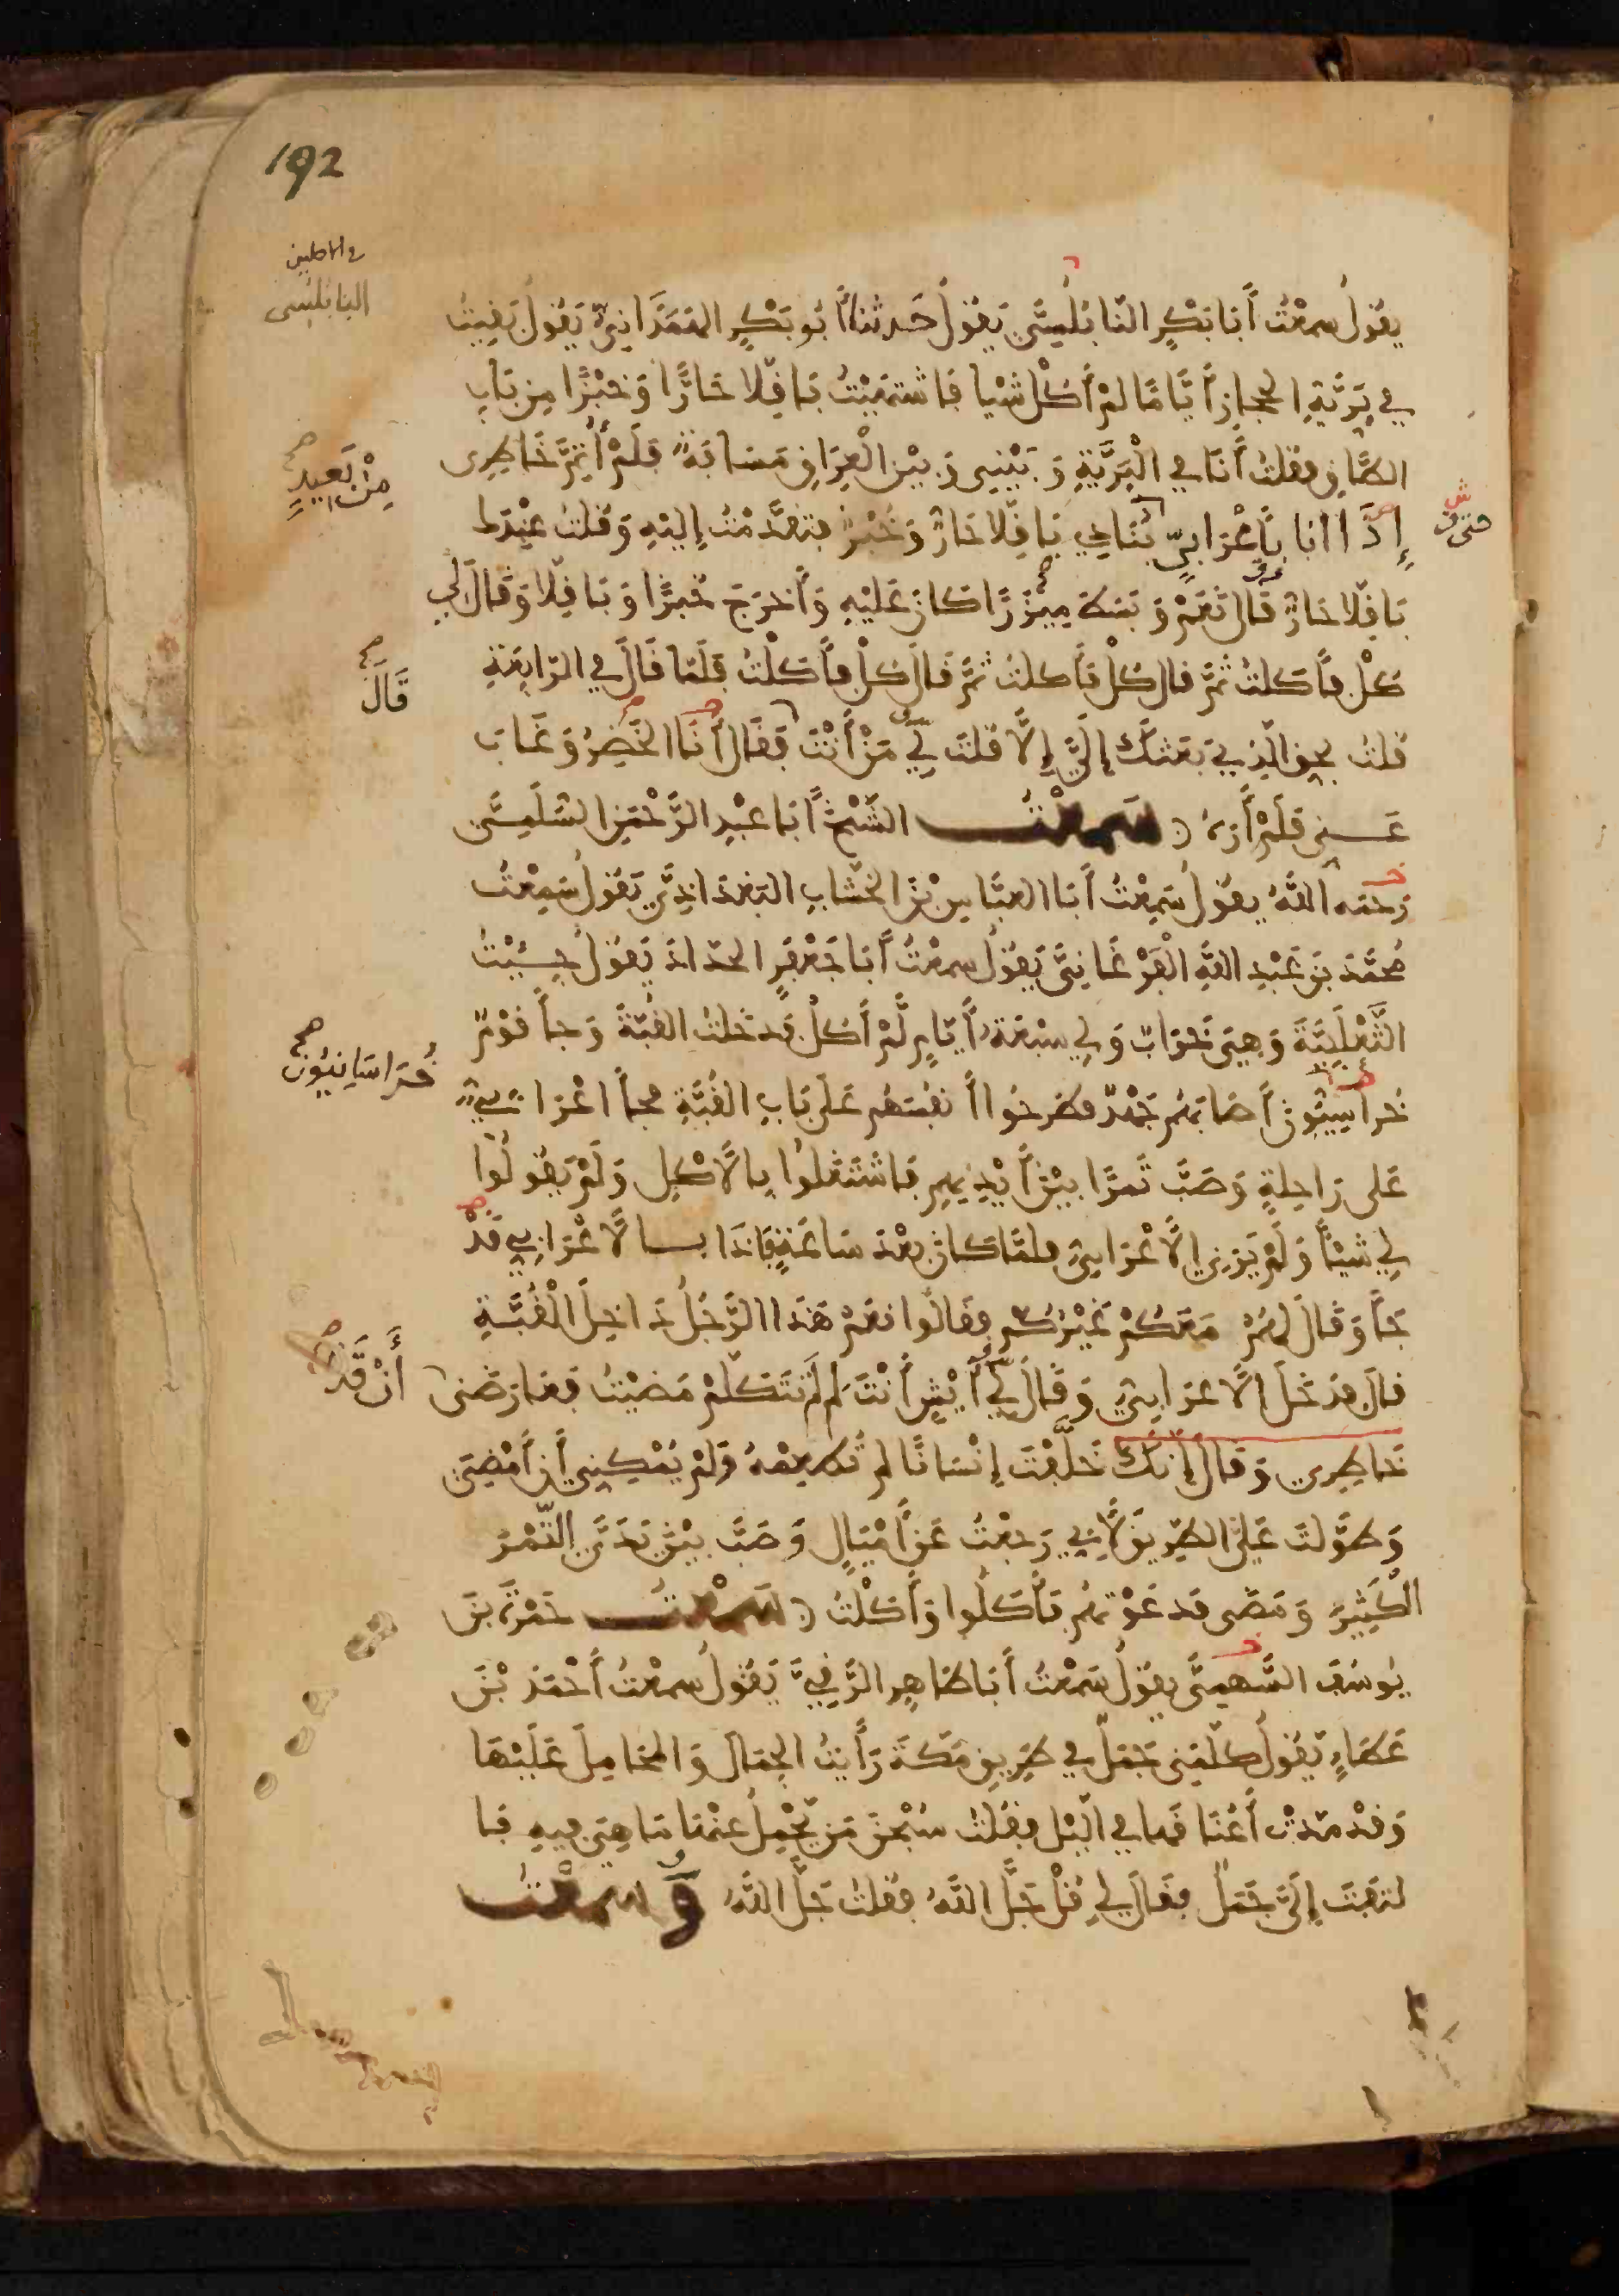 192
في الاصلين
النابلسي
يقول سمعت أبا بكر النابلسي يقول حدثنا أبو بكر الهمداني يقول بقيت
في برية الحجاز أياما لم آكل شيا فاشتهيت باقلا حارا وخبزا من باب
الطاق فقلت أنا في البرية وبيني وبين العراق مسافة فلم أتم خاطرى
من بعيد
حتى
إذا انا بأعرابي ينادي باقلا حار وخبز فتقدمت إليه وقلت عندك
باقلا حار قال نعم وبسط ميزرا كان عليه وأخرج خبزا وباقلا وقال لي
كل فأكلت ثم قال كل فأكلت ثم قال كل فأكلت فلما قال في الرابعة
قال
قلت بحق الذي بعثك إلي إلا قلت لي من أنت فقال أنا الخضر وغاب
عني فلم أره سمعت الشيخ أبا عبد الرحمن السلمي
رحمه الله يقول سمعت أبا العباس بن الخشاب البغدادي يقول سمعت
محمد بن عبد الله الفرغاني يقول سمعت أبا جعفر الحداد يقول جيت
الثعلبية وهي خراب ولي سبعة أيام لم آكل فدخلت القبة وجأ قوم
خراسانيون
خراسيون أصابهم جهد فطرحوا أنفسهم على باب القبة فجأ اعرابي
على راحلة وصب تمرا بين أيديهم فاشتغلوا بالأكل ولم يقولوا
لي شيئا ولم يرني الأعرابي فلما كان بعد ساعة فاذا بالأعرابي قد
جأ وقال لهم معكم غيركم فقالوا نعم هذا الرجل داخل القبة
قال فدخل الأعرابي وقال لي أيش أنت لم لم تتكلم مضيت فعارضني
أن قد
خاطري وقال إنك خلفت إنسانا لم تطعمه ولم يمكني أن أمضي
وطولت علي الطريق لأني رجعت عن أميال وصب بين يدي التمر
الكثير ومضى فدعوتهم فأكلوا وأكلت سمعت حمزة بن
يوسف السهمي يقول سمعت أبا طاهر الرقي يقول سمعت أحمد بن
عطاء يقول كلمني جمل في طريق مكة رأيت الجمال والمحامل عليها
وقد مدت أعناقها في اليل فقلت سبحن من يحمل عنها ما هي فيه فا
لتفت إلي جمل فقال لي قل جل الله فقلت جل الله وسمعت